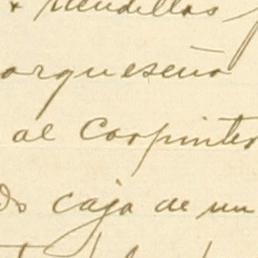 Mendillos
orqueseño
al Carpintero
caja de un